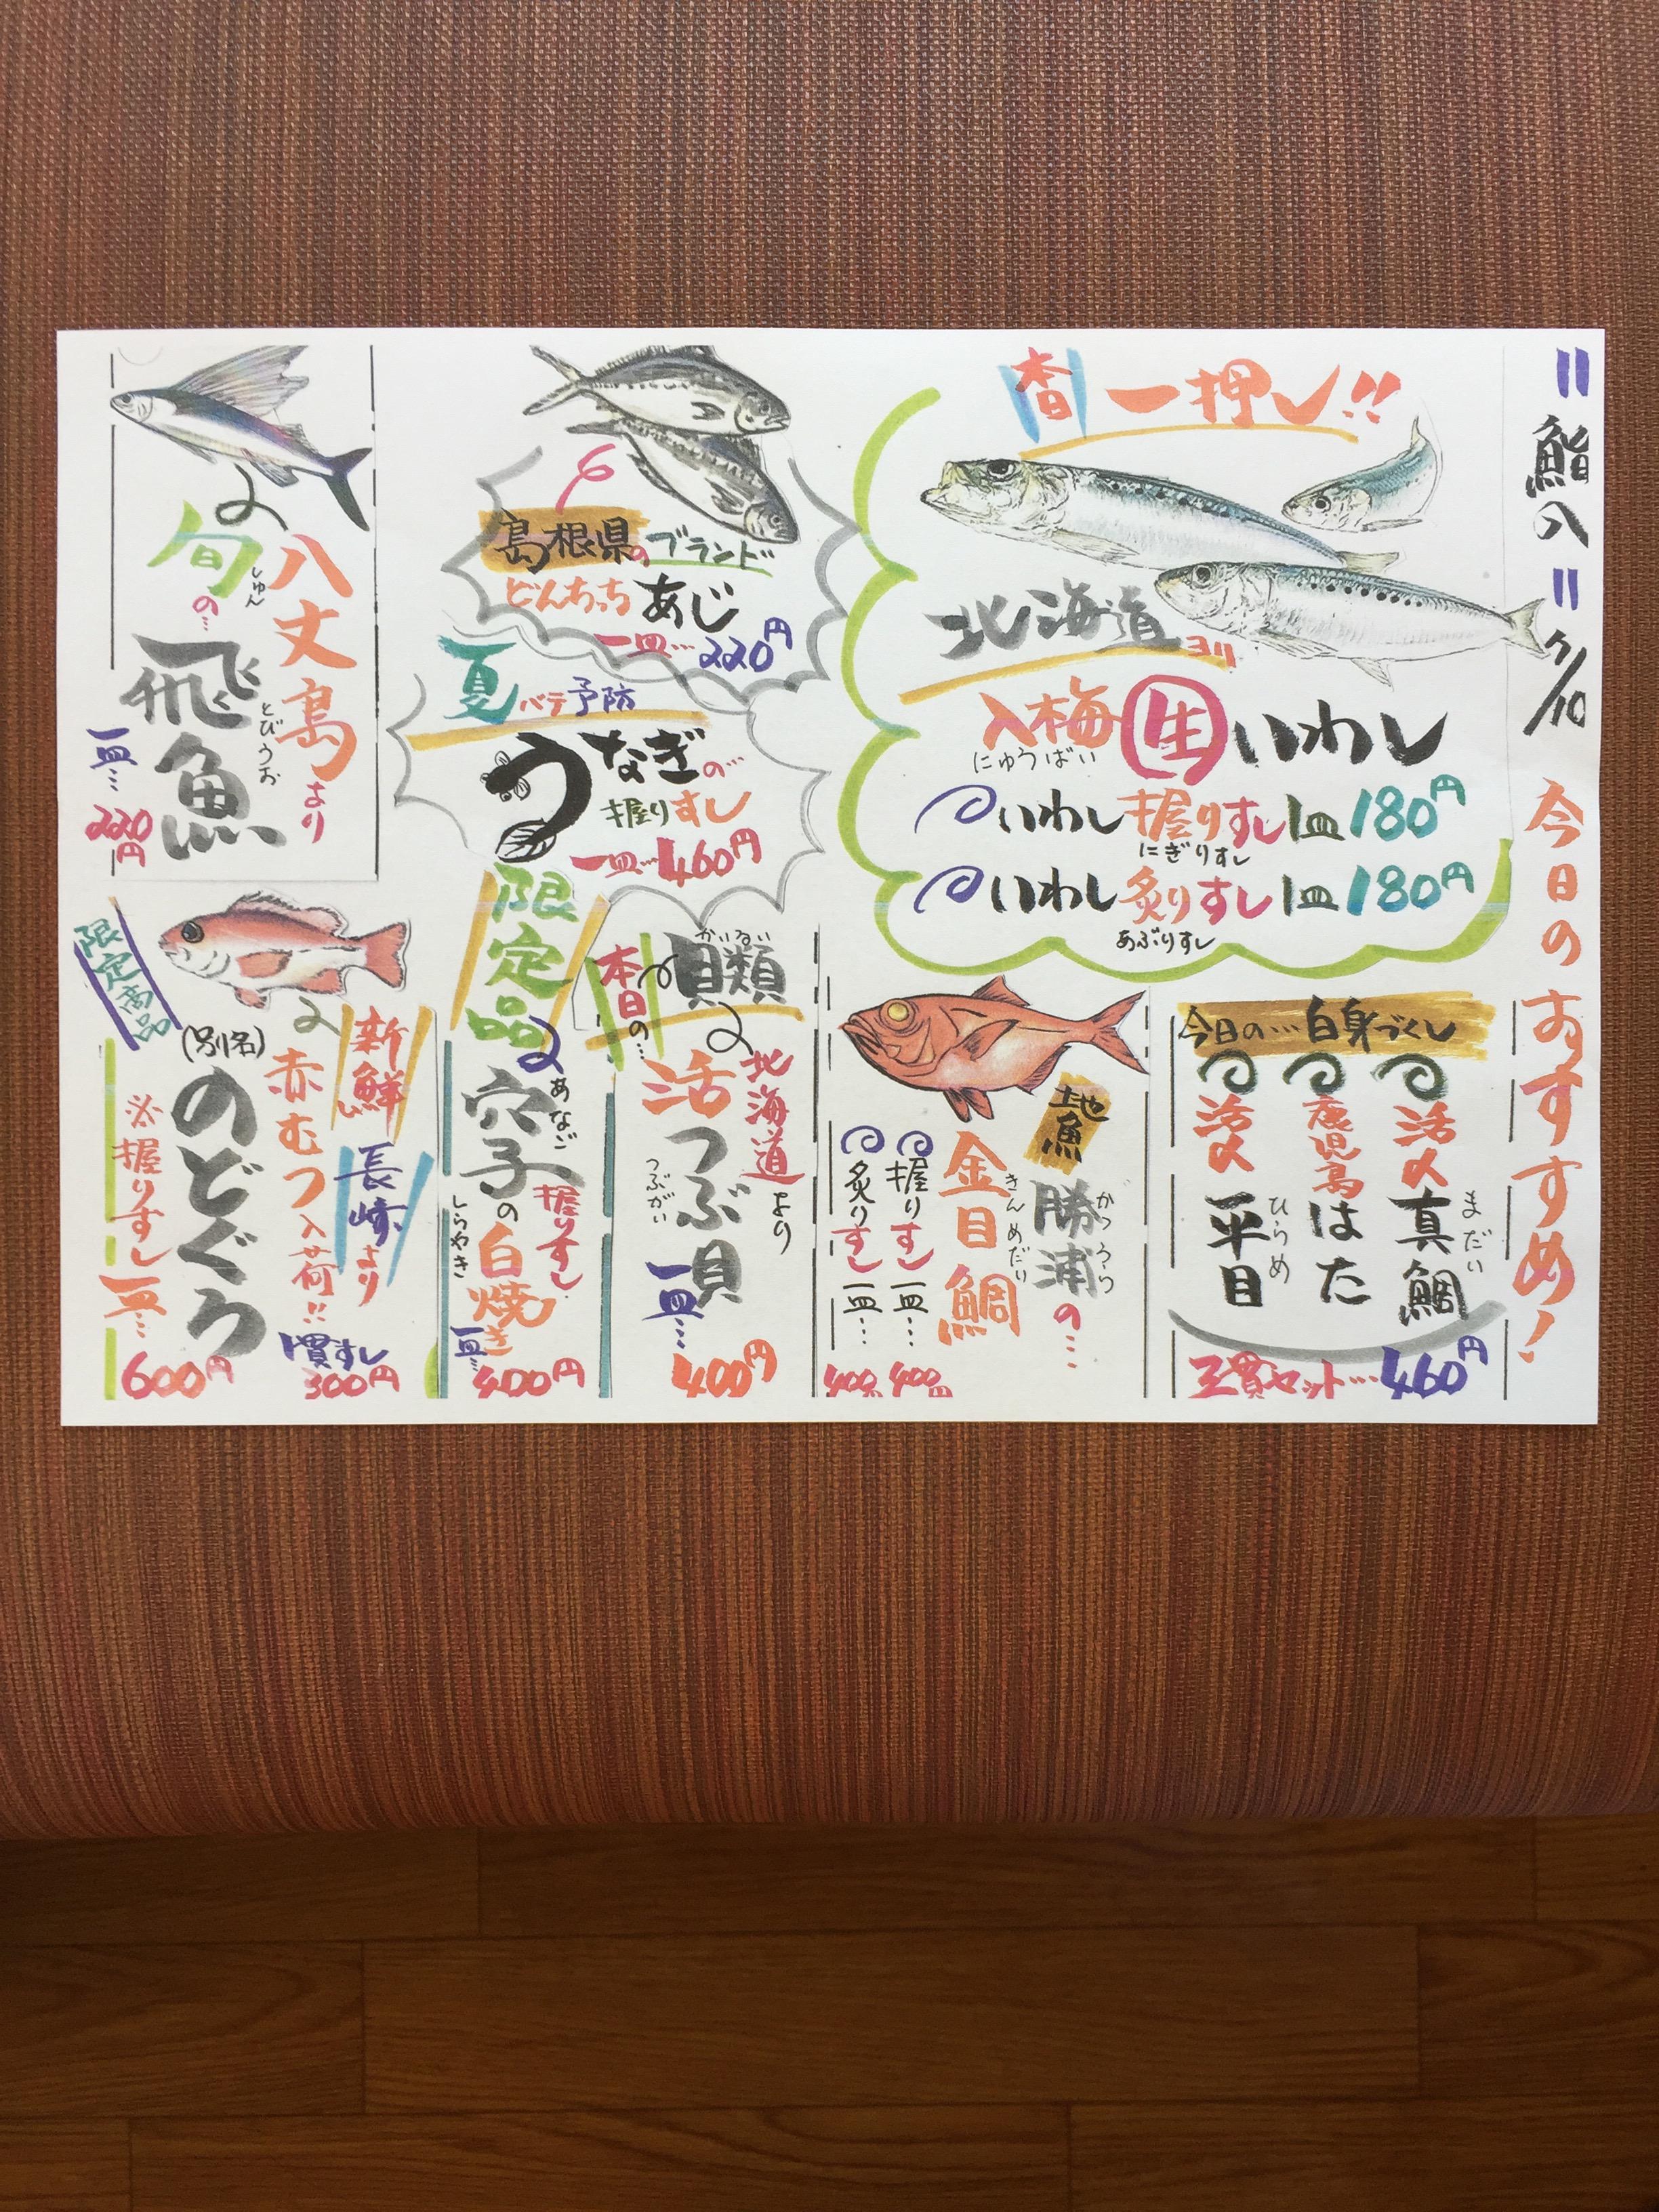 鮨八
7/10
今日のおすすめ!
本日一押し!!
北海道より
入梅生いわし
にゅうばい
いわし握りすし1皿180円
にぎりすし
いわし炙りすし1皿180円
あぶりすし
今日の…白身づくし
活〆真鯛
まだい
鹿児島はた
活〆平目
ひらめ
三貫セット…460円
島根県のブランド
どんちっちあじ
一皿…220円
夏バテ予防
うなぎの…
握りすし
一皿…460円
地魚
勝浦の…
かつうら
金目鯛
きんめだい
握りすし一皿…
炙りすし一皿…
本日の…貝類
かいるい
北海道より
活つぶ貝
つぶがい
一皿…
400円
限定品
穴子の白焼き
あなご
しらやき
握りすし
一皿…
400円
八丈島より
旬の…
しゅん
飛魚
とびうお
一皿…
220円
限定商品
新鮮
長崎より
赤むつ入荷!!
(別名)
のどぐろ
※握りすし一皿…
600円
1貫すし
300円